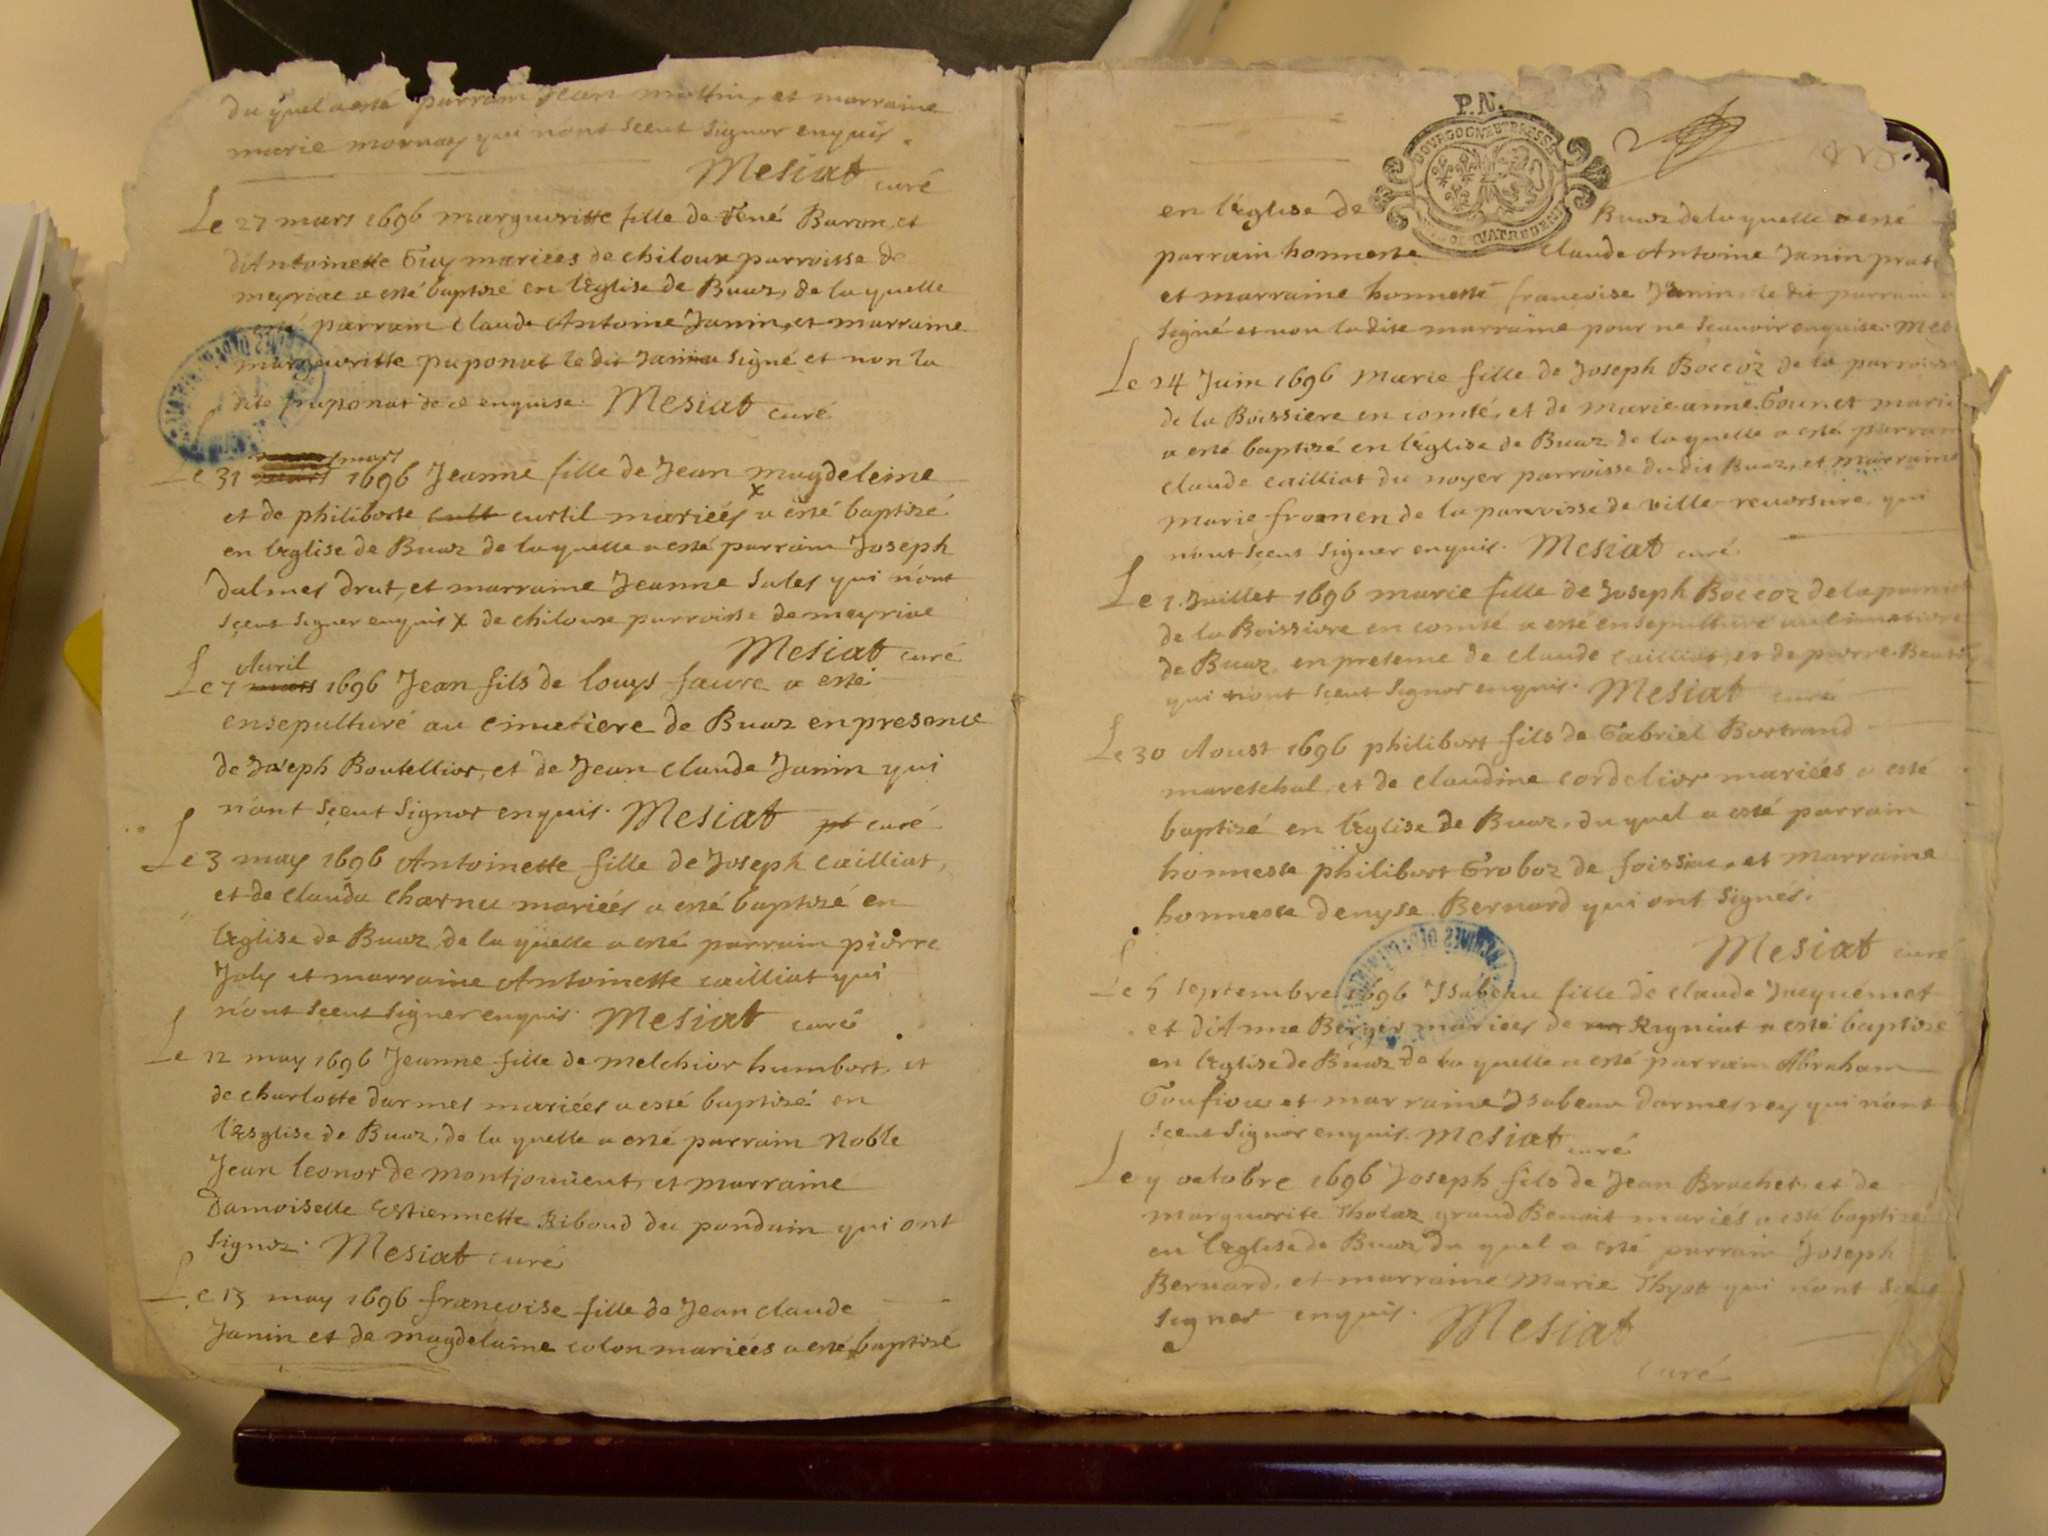 du quel a esté parrain Jean mottin, et marraine
marie mornay qui n'ont sceut signer enquis.
Mesiat curé
Le 27 mars 1696 margueritte fille de René Buron, et
d'Antoinette Guy mariées de chiloux parroisse de
meyriae a esté baptizé en l'eglise de Buaz, de la quelle
esté parrain Claude Antoine Janin, et marraine
margueritte puponat le dit Janin a signé et non la
dite puponat de ce enquise. Mesiat curé
Le 31 mars 1696 Jeanne fille de Jean magdeleine
et de philiberte curtil mariéés x a esté baptizé
en l'eglise de Buaz de la quelle a esté parrain Joseph
dalmes drut, et marraine Jeanne Sules qui n'ont
sceut signer enquis x de chiloux parroisse de meyriae
Mesiat curé
Avril
Le 7 1696 Jean fils de louys faure a esté
ensepulturé au cimetiere de Buaz en presence
de Joseph Boutellier, et de Jean Claude Janin qui
n'ont sceut signer enquis. Mesiat curé
Le 3 may 1696 Antoinette fille de Joseph Cailliat,
et de Clauda Charnu mariéés a esté baptizé en
l'eglise de Buaz, de la quelle a esté parrain pierre
Joly et marraine Antoinette cailliat qui
n'ont sceut signer enquis. Mesiat curé
Le 12 may 1696 Jeanne fille de melchior humbert, et
de charlotte darmes mariéés a esté baptizé en
l'esglise de Buaz, de la quelle a esté parrain Noble
Jean leonor de montjouuent, et marraine
Damoiselle Estiennette Riboud du pondain qui ont
signez. Mesiat curé
Le 13 may 1696 francoise fille de Jean Claude
Janin et de magdelaine colon mariéés a esté baptizé
P.N.
BOURGOGNE ET BRESSE
QUATRE DEN
en l'eglise de Buaz de la quelle a esté
parrain honneste Claude Antoine Janin
et marraine honneste francoise Janin, le dit parrain a
signé et non la dite marraine pour ne scauoir enquise.
Le 24 Juin 1696 Marie fille de Joseph Boccoz de la parroisse
de la Boissiere en comté, et de marie anne Gour
a esté baptizé en l'eglise de Buaz de la quelle a esté parrain
Claude Cailliat du noyer parroisse du dit Buaz, et marraine
Marie fromen de la parroisse de ville-reuersure qui
n'ont sceut signer enquis. Mesiat curé
Le 1. Juillet 1696 marie fille de Joseph Boccoz de la
de la Boissiere en comté a esté ensepulturé au cimetiere
de Buaz en presence de Claude Cailliat, et de pierre
qui n'ont sceut signer enquis. Mesiat curé
Le 30 Aoust 1696 philibert fils de Gabriel Bertrand
mareschal, et de Claudine Cordelier mariéés a esté
baptizé en l'eglise de Buaz, du quel a esté parrain
honneste philibert Groboz de foissiac, et marraine
honneste denyse Bernard qui ont signés.
Mesiat curé
Le 5 septembre 1696 Isabeau fille de Claude Jacquemet
et d'Anne Berger mariees de Rigniat a esté baptizé
en l'eglise de Buaz de la quelle a esté parrain Abraham
Goufiou et marraine Isabeau darmes rey qui n'ont
sceut signer enquis. Mesiat curé
Le 7 octobre 1696 Joseph fils de Jean Brachet, et de
marguerite Tholaz grand Benoit mariés a esté baptizé
en l'eglise de Buaz du quel a esté parrain Joseph
Bernard, et marraine Marie Thyot qui n'ont sceut
signer enquis. Mesiat
curé